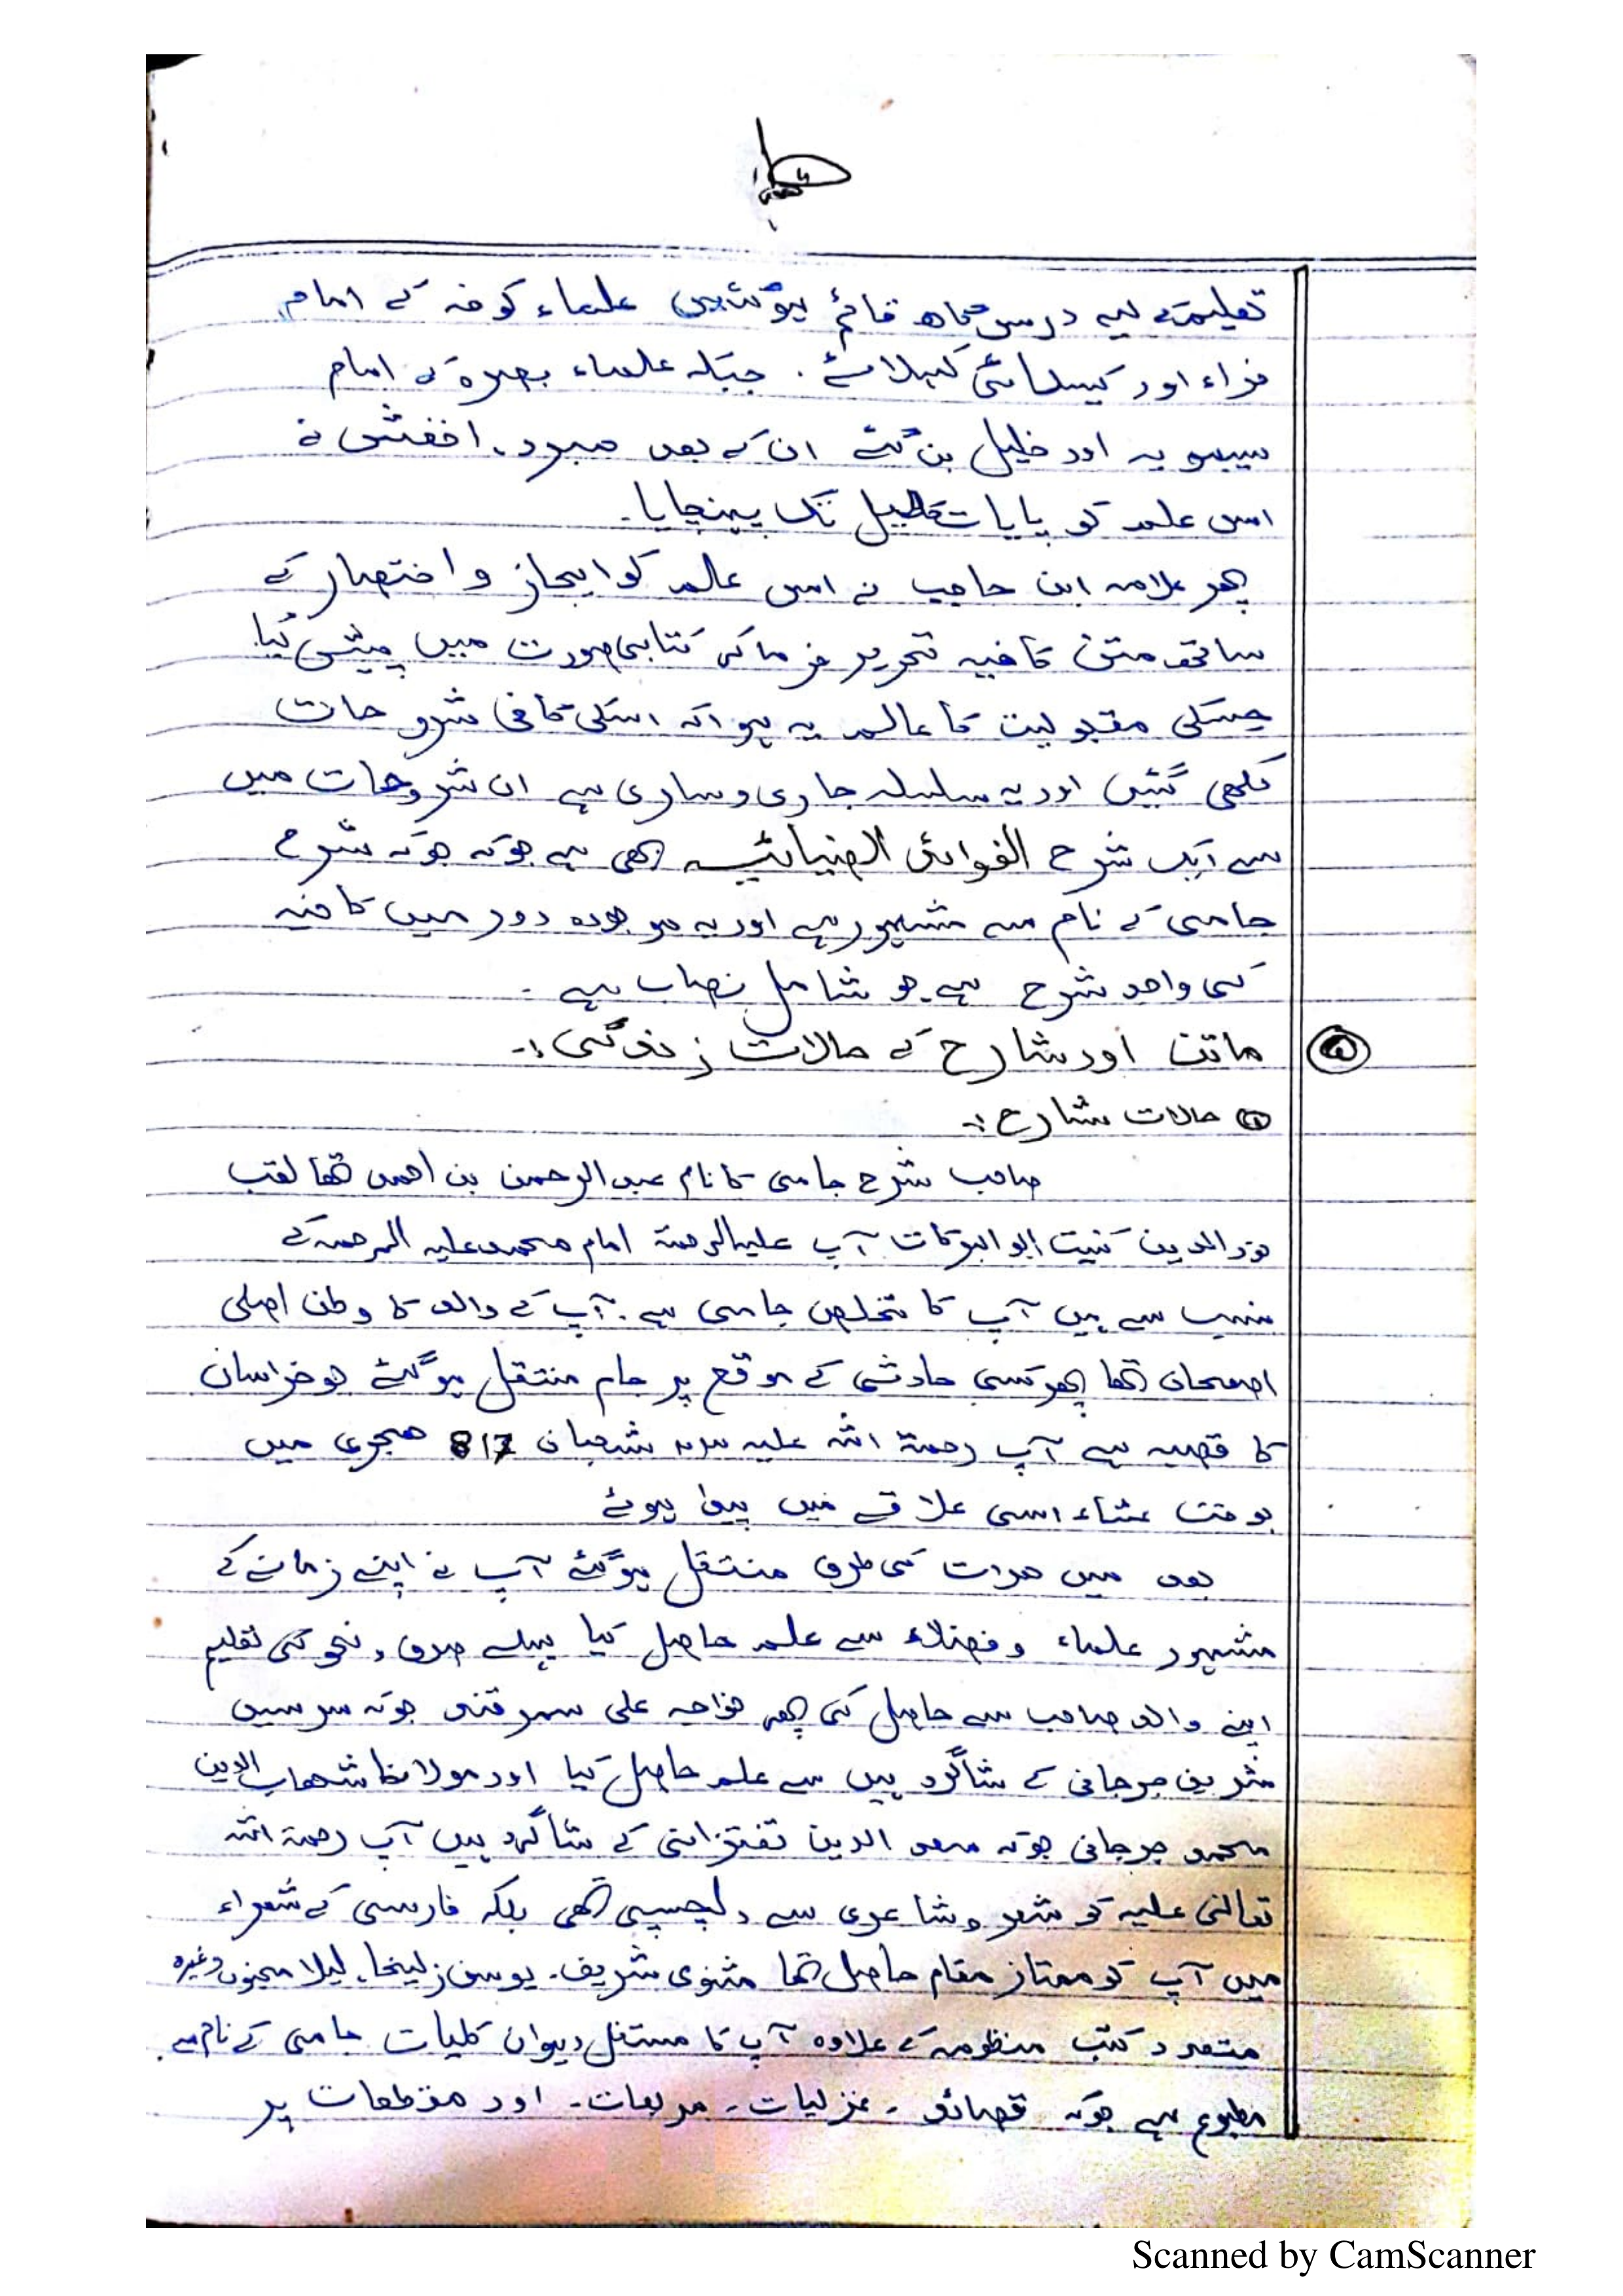 تعلیم کے لیے درس گاھ قائم ہوئیں علماء کوفہ کے امام
فراء اور کیسائی کہلائے . جبکہ علماء بصرہ کے امام
سیبویہ اور خلیل بن گئے ان کے بعد مبرد . اخفش نے
اس علم کو پایات تکمیل تک پہنچایا۔
پھر علامہ ابن حاجب نے اس عالم کو ایجاز و اختصار کے
ساتھ متن کافیہ تحریر فرما کر کتابی صورت میں پیش کیا
جسکی مقبولیت کا عالم یہ ہوا کہ اسکی کافی شروحات
لکھی گئیں اور یہ سلسلہ جاری و ساری ہے ان شروحات میں
سے ایک شرح الفوائد الضیائیہ بھی ہے جو کہ جو کہ شرح
جامی کے نام سے مشہور ہے اور یہ موجودہ دور میں کافیہ
کی واحد شرح ہے جو شامل نصاب ہے ۔
ماتن اور شارح کے حالات زندگی :۔
حالات شارح :۔
صاحب شرح جامی کا نام عبدالرحمن بن احمد تھا لقب
نور الدین کنیت ابو البرکات آپ علیہ الرحمۃ امام محمد علیہ الرحمہ کے
نسب سے ہیں آپ کا تخلص جامی ہے . آپ کے والد کا وطن اصلی
اصفحان تھا پھر کسی حادثے کے موقع پر جام منتقل ہو گئے جو خراسان
کا قصبہ ہے آپ رحمۃ اللہ علیہ شعبان 817 ھجری میں
بوقت عشاء اسی علاقے میں پیدا ہوئے
بعد میں ھرات کی طرف منتقل ہو گئے آپ نے اپنے زمانے کے
مشہور علماء و فضلاء سے علم حاصل کیا پہلے صرف و نحو کی تعلیم
اپنے والد صاحب سے حاصل کی پھر خواجہ علی سمرقندی جو کہ سرسید
شریف جرجانی کے شاگرد ہیں سے علم حاصل کیا اور مولانا شھاب الدین
محمد جرجانی جو کہ سعد الدین تفتزانی کے شاگرد ہیں آپ رحمۃ اللہ
تعالیٰ علیہ کو شعر و شاعری سے دلچسپی تھی بلکہ فارسی کے شعراء
میں آپ کو ممتاز مقام حاصل تھا مثنوی شریف۔ یوسف زلیخا۔ لیلا مجنوں وغیرہ
متعدد کتب منظومہ کے علاوہ آپ کا مستقل دیوان کلیات جامی کے نام سے
مطبوع ہے جو کہ قصائد ۔ غزلیات ۔ مربعات ۔ اور مقطعات پر
Scanned by CamScanner